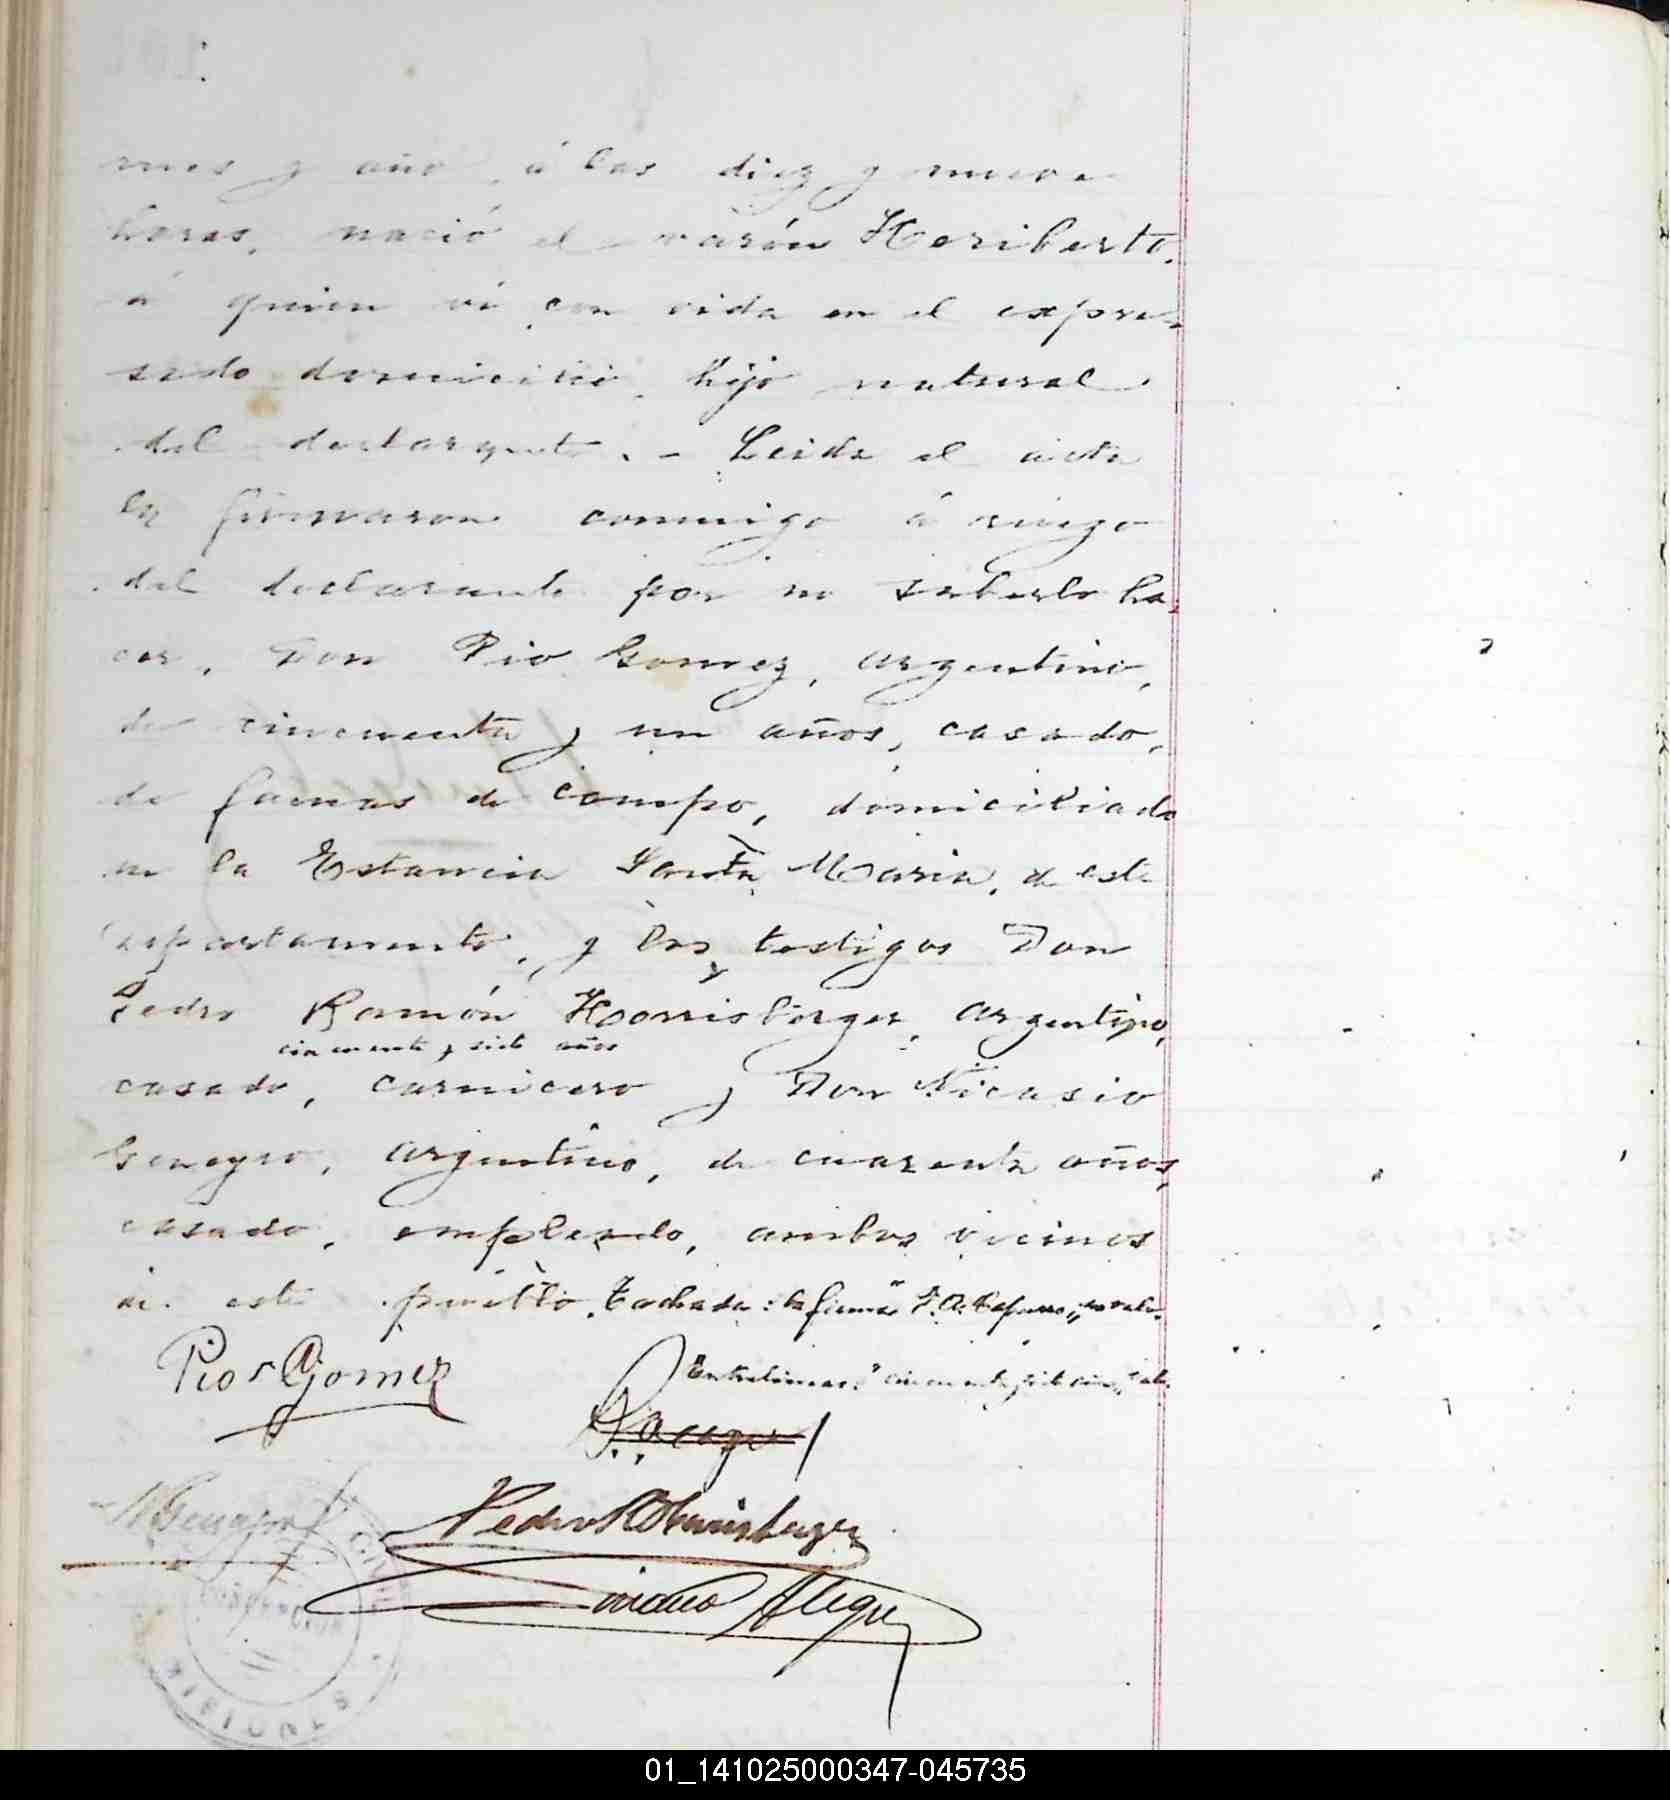 mes y año, á las diez y nueve
horas, nació el varón Heriberto,
á quien ví con vida en el expre-
sado domicilio, hijo natural
del declarante. - Leida el acta
la firmaron conmigo á ruego
del declarante por no saberlo ha-
cer, Don Pio Gomez, argentino,
de cincuenta y un años, casado,
de faenas de campo, domiciliado
en la Estancia Santa Maria, de este
departamento, y los testigos Don
Pedro Ramón Harrisberger, argentino,
cincuenta y siete años
casado, carnicero y Don Nicasio
Geneyro, argentino, de cuarenta años,
casado, empleado, ambos vecinos
de este pueblo. Tachada: la firma "
Entrelineas: " cincuenta y siete años"
Pio Gomez
N Geneyro
Pedro R Harrisberger
Alegre
CIVIL
MISIONES
01_141025000347-045735